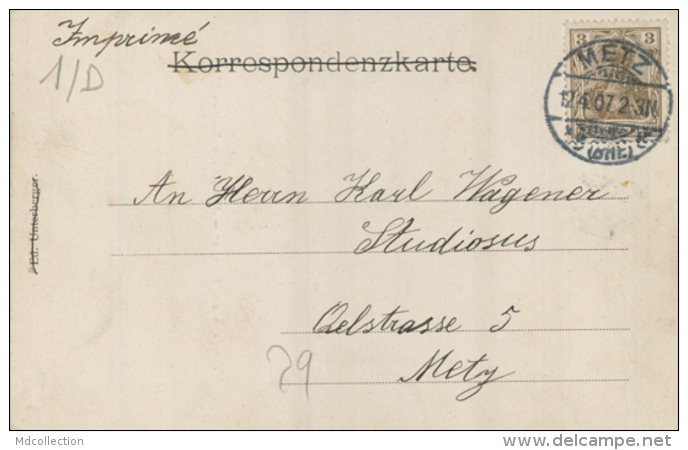 Imprimé
1/D
Korrespondenzkarte.
3 3
METZ
12.4.07. 2-3N
(BHF.)
Ed. Unterberger.
An Herrn Karl Wagener
Studiosus
Oelstrasse 5
Metz
29
Mdcollection
www.delcampe.net